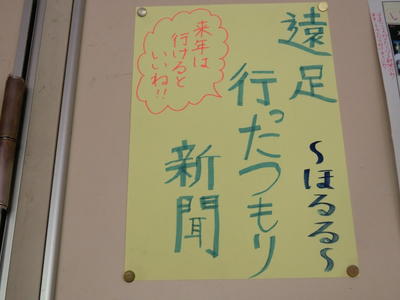 遠足
行ったつもり
新聞
～ほるる～
来年は
行けると
いいね!!